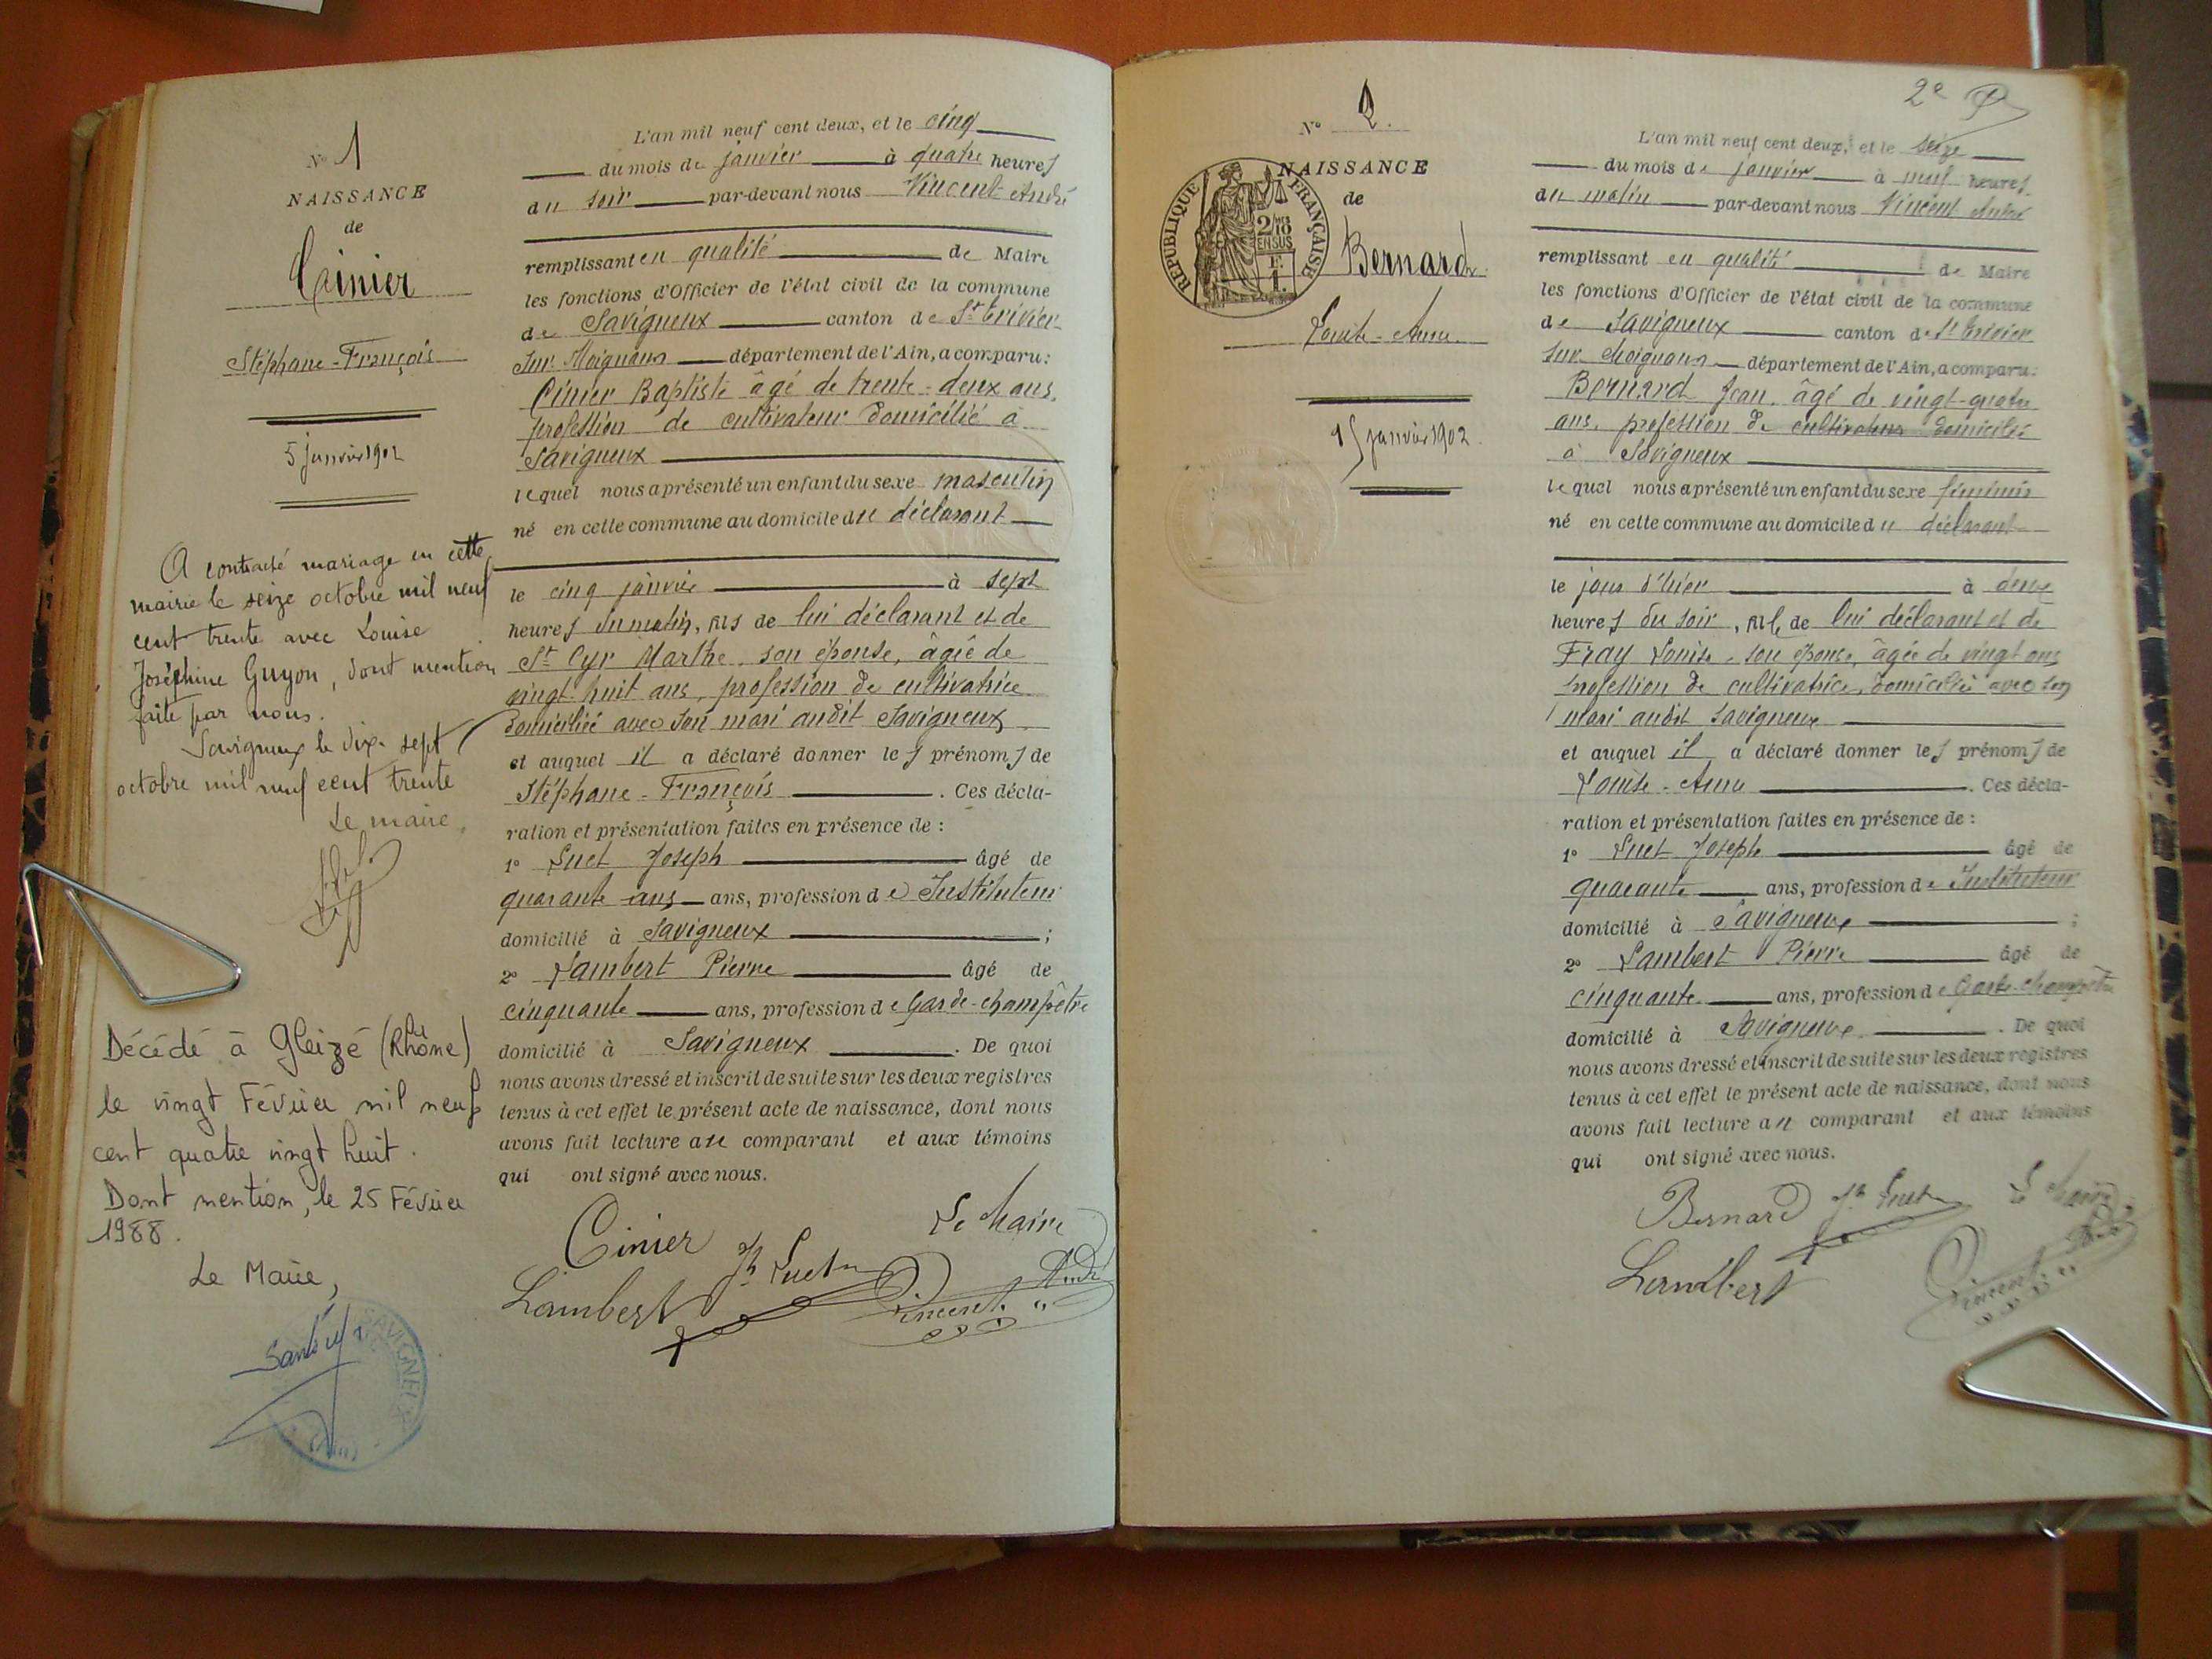 N° 1
NAISSANCE
de
Cinier
Stéphane-François
5 janvier 1902
A contracté mariage en cette
mairie le seize octobre mil neuf
cent trente avec Louise
Joséphine Guyon, dont mention
faite par nous.
Savigneux le dix-sept
octobre mil neuf cent trente
Le maire,
Décédé à Gleizé (Rhône)
le vingt Février mil neuf
cent quatre vingt huit.
Dont mention, le 25 Février
1988.
Le Maire,
SAVIGNEUX
(Ain)
L'an mil neuf cent deux, et le cinq
du mois de janvier à quatre heures
du soir par-devant nous Vincent André
remplissant en qualité de Maire
les fonctions d'Officier de l'état civil de la commune
de Savigneux canton de St Trivier
sur Moignans département de l'Ain, a comparu:
Cinier Baptiste âgé de trente-deux ans,
profession de cultivateur domicilié à
Savigneux
lequel nous a présenté un enfant du sexe masculin
né en cette commune au domicile du déclarant
le cinq janvier à sept
heures du matin, fils de lui déclarant et de
St Cyr Marthe, son épouse, âgée de
vingt huit ans, profession de cultivatrice
domiciliée avec son mari audit Savigneux
et auquel il a déclaré donner les prénoms de
Stéphane-François. Ces décla-
ration et présentation faites en présence de :
1° Luet Joseph âgé de
quarante ans ans, profession de Instituteur
domicilié à Savigneux ;
2° Lambert Pierre âgé de
cinquante ans, profession de Garde-champêtre
domicilié à Savigneux. De quoi
nous avons dressé et inscrit de suite sur les deux registres
tenus à cet effet le présent acte de naissance, dont nous
avons fait lecture au comparant et aux témoins
qui ont signé avec nous.
Cinier Jh Luet Le Maire
Lambert Vincent André
2e
N° 2.
NAISSANCE
de
RÉPUBLIQUE FRANÇAISE
2/10
EN SUS
Bernard
Louise-Anna
15 janvier 1902
L'an mil neuf cent deux, et le seize
du mois de janvier à neuf heures
du matin par-devant nous Vincent André
remplissant en qualité de Maire
les fonctions d'Officier de l'état civil de la commune
de Savigneux canton de St Trivier
sur Moignans département de l'Ain, a comparu:
Bernard Jean, âgé de vingt-quatre
ans, profession de cultivateur domicilié
à Savigneux
lequel nous a présenté un enfant du sexe féminin
né en cette commune au domicile du déclarant
le jour d'hier à deux
heures du soir, fille de lui déclarant et de
Fray Louise, son épouse, âgée de vingt ans
profession de cultivatrice, domiciliée avec son
mari audit Savigneux
et auquel il a déclaré donner les prénoms de
Louise-Anna. Ces décla-
ration et présentation faites en présence de :
1° Luet Joseph âgé de
quarante ans, profession de Instituteur
domicilié à Savigneux ;
2° Lambert Pierre âgé de
cinquante ans, profession de Garde-champêtre
domicilié à Savigneux. De quoi
nous avons dressé et inscrit de suite sur les deux registres
tenus à cet effet le présent acte de naissance, dont nous
avons fait lecture au comparant et aux témoins
qui ont signé avec nous.
Bernard Jh Luet Le Maire
Lambert Vincent André